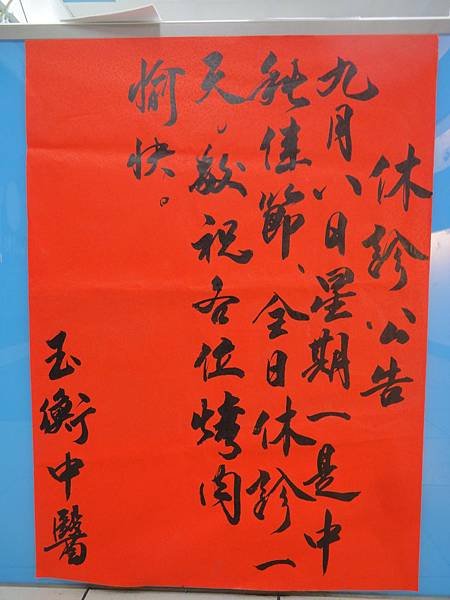 休診公告
九月八日星期一是中
秋佳節、全日休診一
天。敬祝各位烤肉
愉快。
玉衡中醫